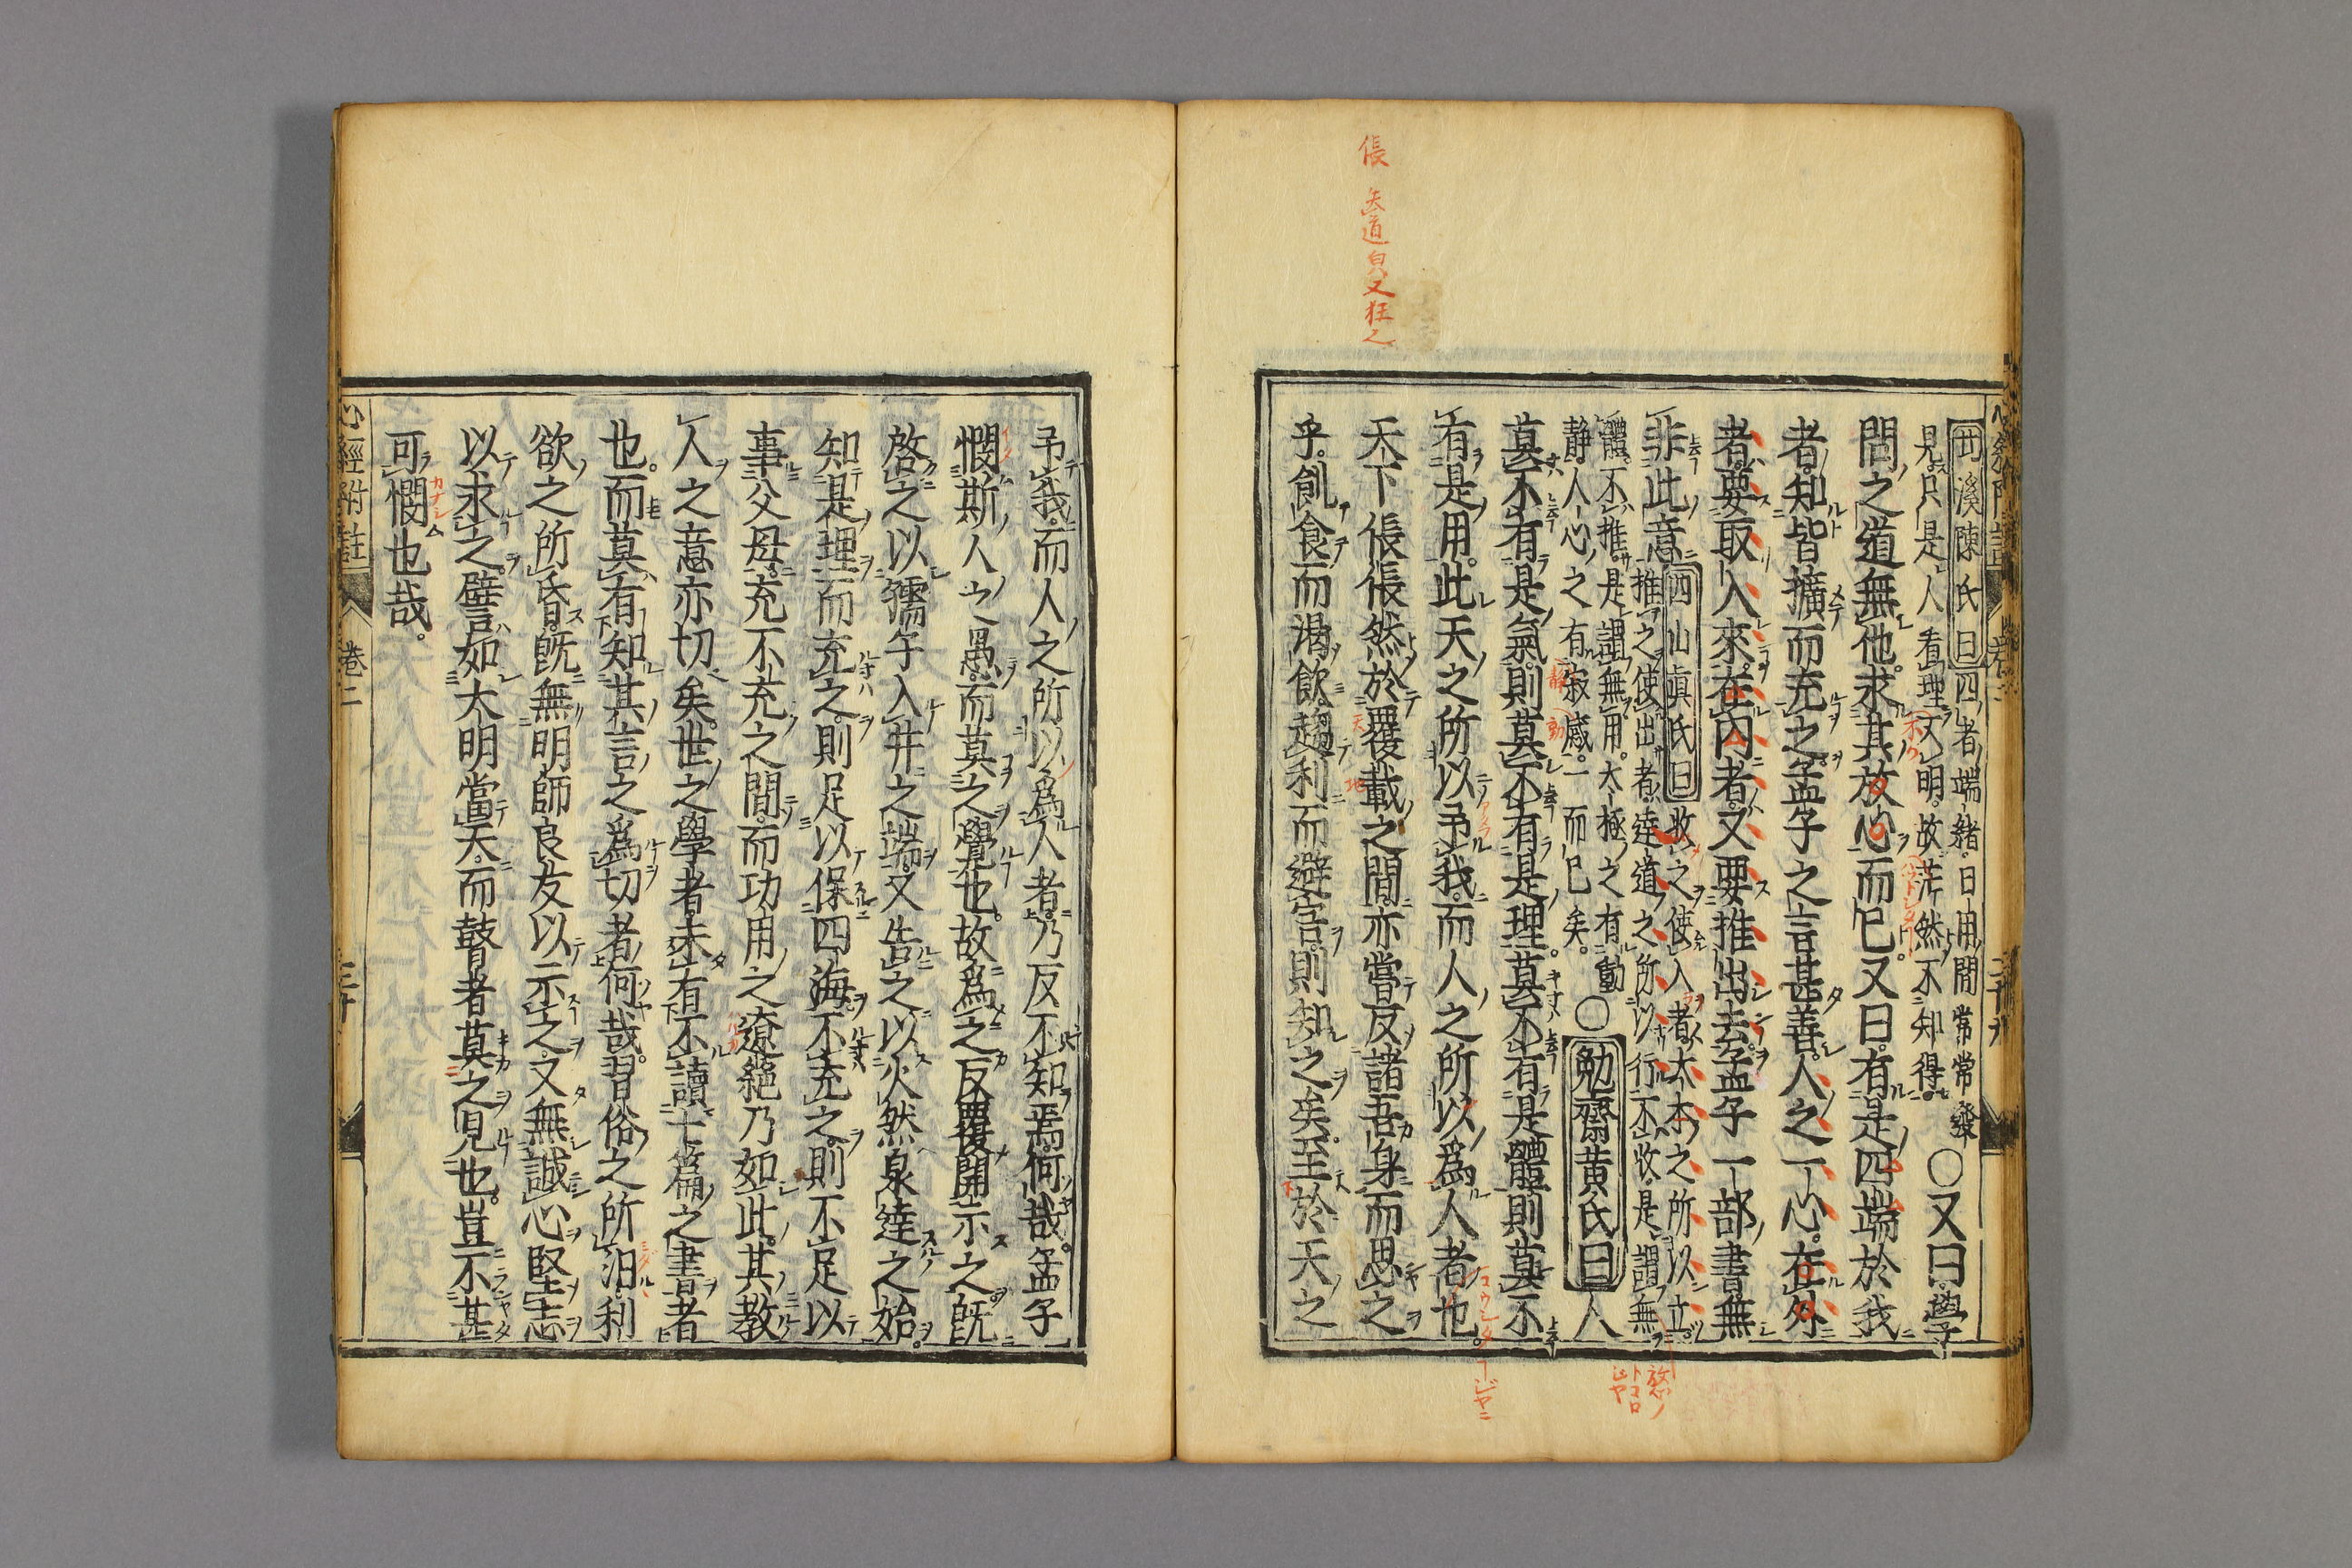 倀 失道皃又狂也
心經附註 卷二 二十九
溪陳氏曰四者端緒日用間常常發
見只是人看理又明故茫然不知得○又曰學
問之道無他求其放心而已又曰有是四端於我
者知皆擴而充之孟子之言甚善人之一心在外
者要取入來在内者又要推出去孟子一部書無
非此意西山眞氏曰收之使入者大本之所以立
推之使出者達道之所以行不收是謂無
體不推是謂無用太極之有動
靜人心之有寂感一而已矣○勉齋黄氏曰人
莫不有是氣則莫不有是理莫不有是體則莫不
有是用此天之所以予我而人之所以爲人者也
天下倀倀然於覆載之間亦當反諸吾身而思之
乎飢食而渴飲趨利而避害則知之矣至於天之
予我而人之所以爲人者乃反不知焉何哉孟子
憫斯人之愚而莫之覺也故爲之反覆開示之既
啓之以孺子入井之端又告之以火然泉達之始
知是理而充之則足以保四海不充之則不足以
事父母充不充之間而功用之遼絕乃如此其教
人之意亦切矣世之學者未有不讀七篇之書者
也而莫有知其言之爲切者何哉習俗之所汨利
欲之所昏旣無明師良友以示之又無誠心堅志
以求之譬如大明當天而瞽者莫之見也豈不甚
可憫也哉
心經附註 卷二 三十